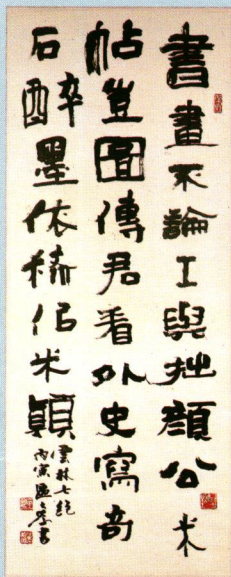 書畫不論工與拙顏公米
帖豈圖傳君看外史寫奇
石醉墨依稀佀米顛
雲林七絕
丙寅書